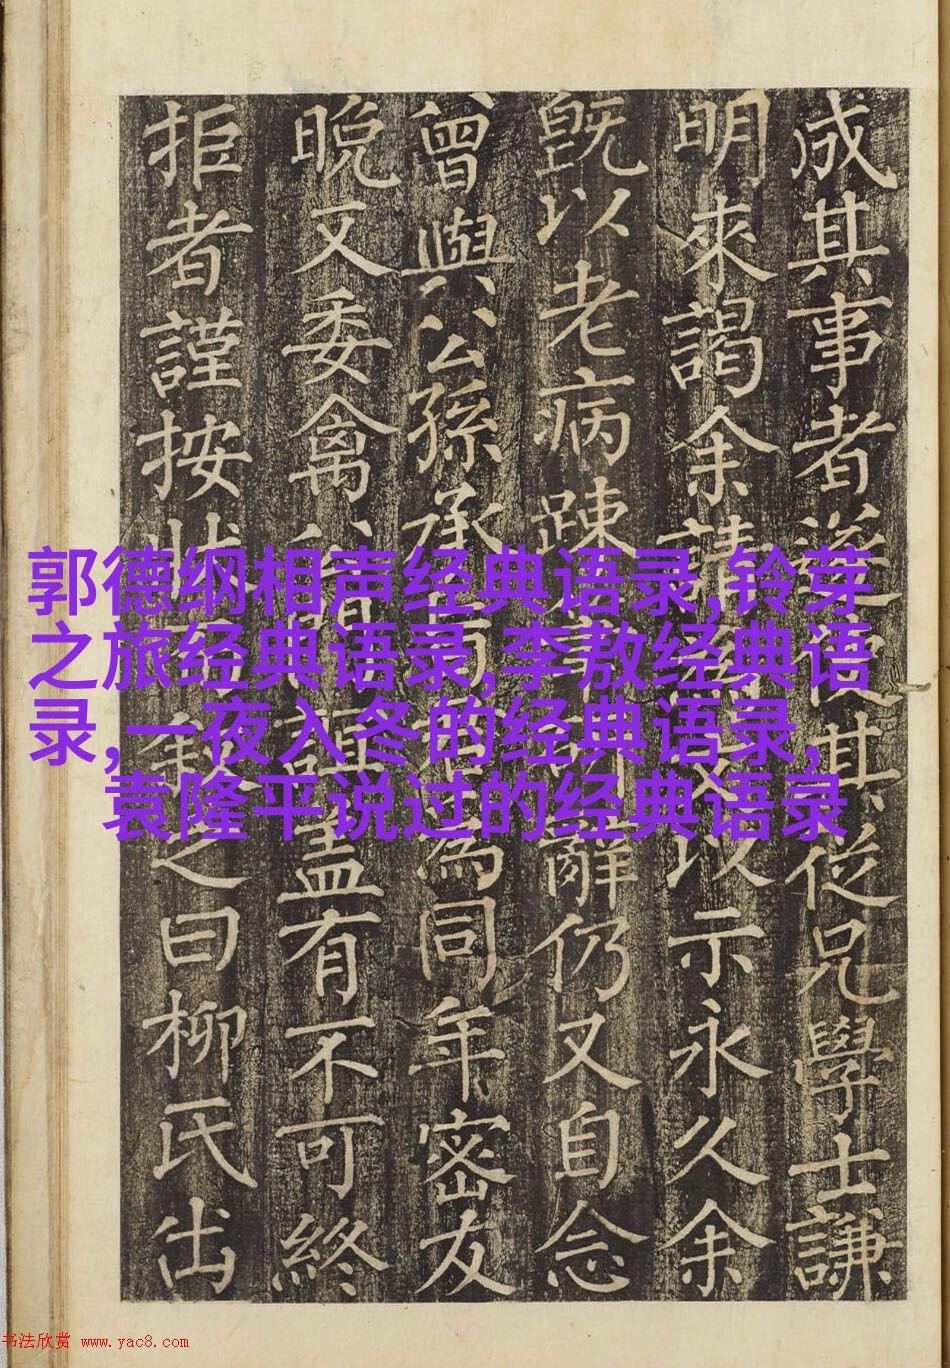 成其事者遂使其從兄學士謙
明來謁余請以示永久余
既以老病踈辭仍又自念
曾與公孫承為同年密友
晚又委禽誼盖有不可終
拒者謹按狀之曰柳氏出
郭德纲相声经典语录,铃芽
之旅经典语录,李敖经典语
录,一夜入冬的经典语录,
袁隆平说过的经典语录
书法欣赏 www.yac8.com